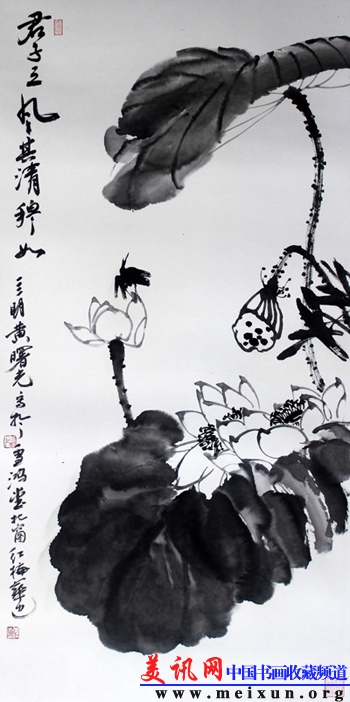 君子之风其清穆如
三明黄曙光写于
雪鸿堂北窗红梅
美讯网 中国书画收藏频道
www.meixun.org